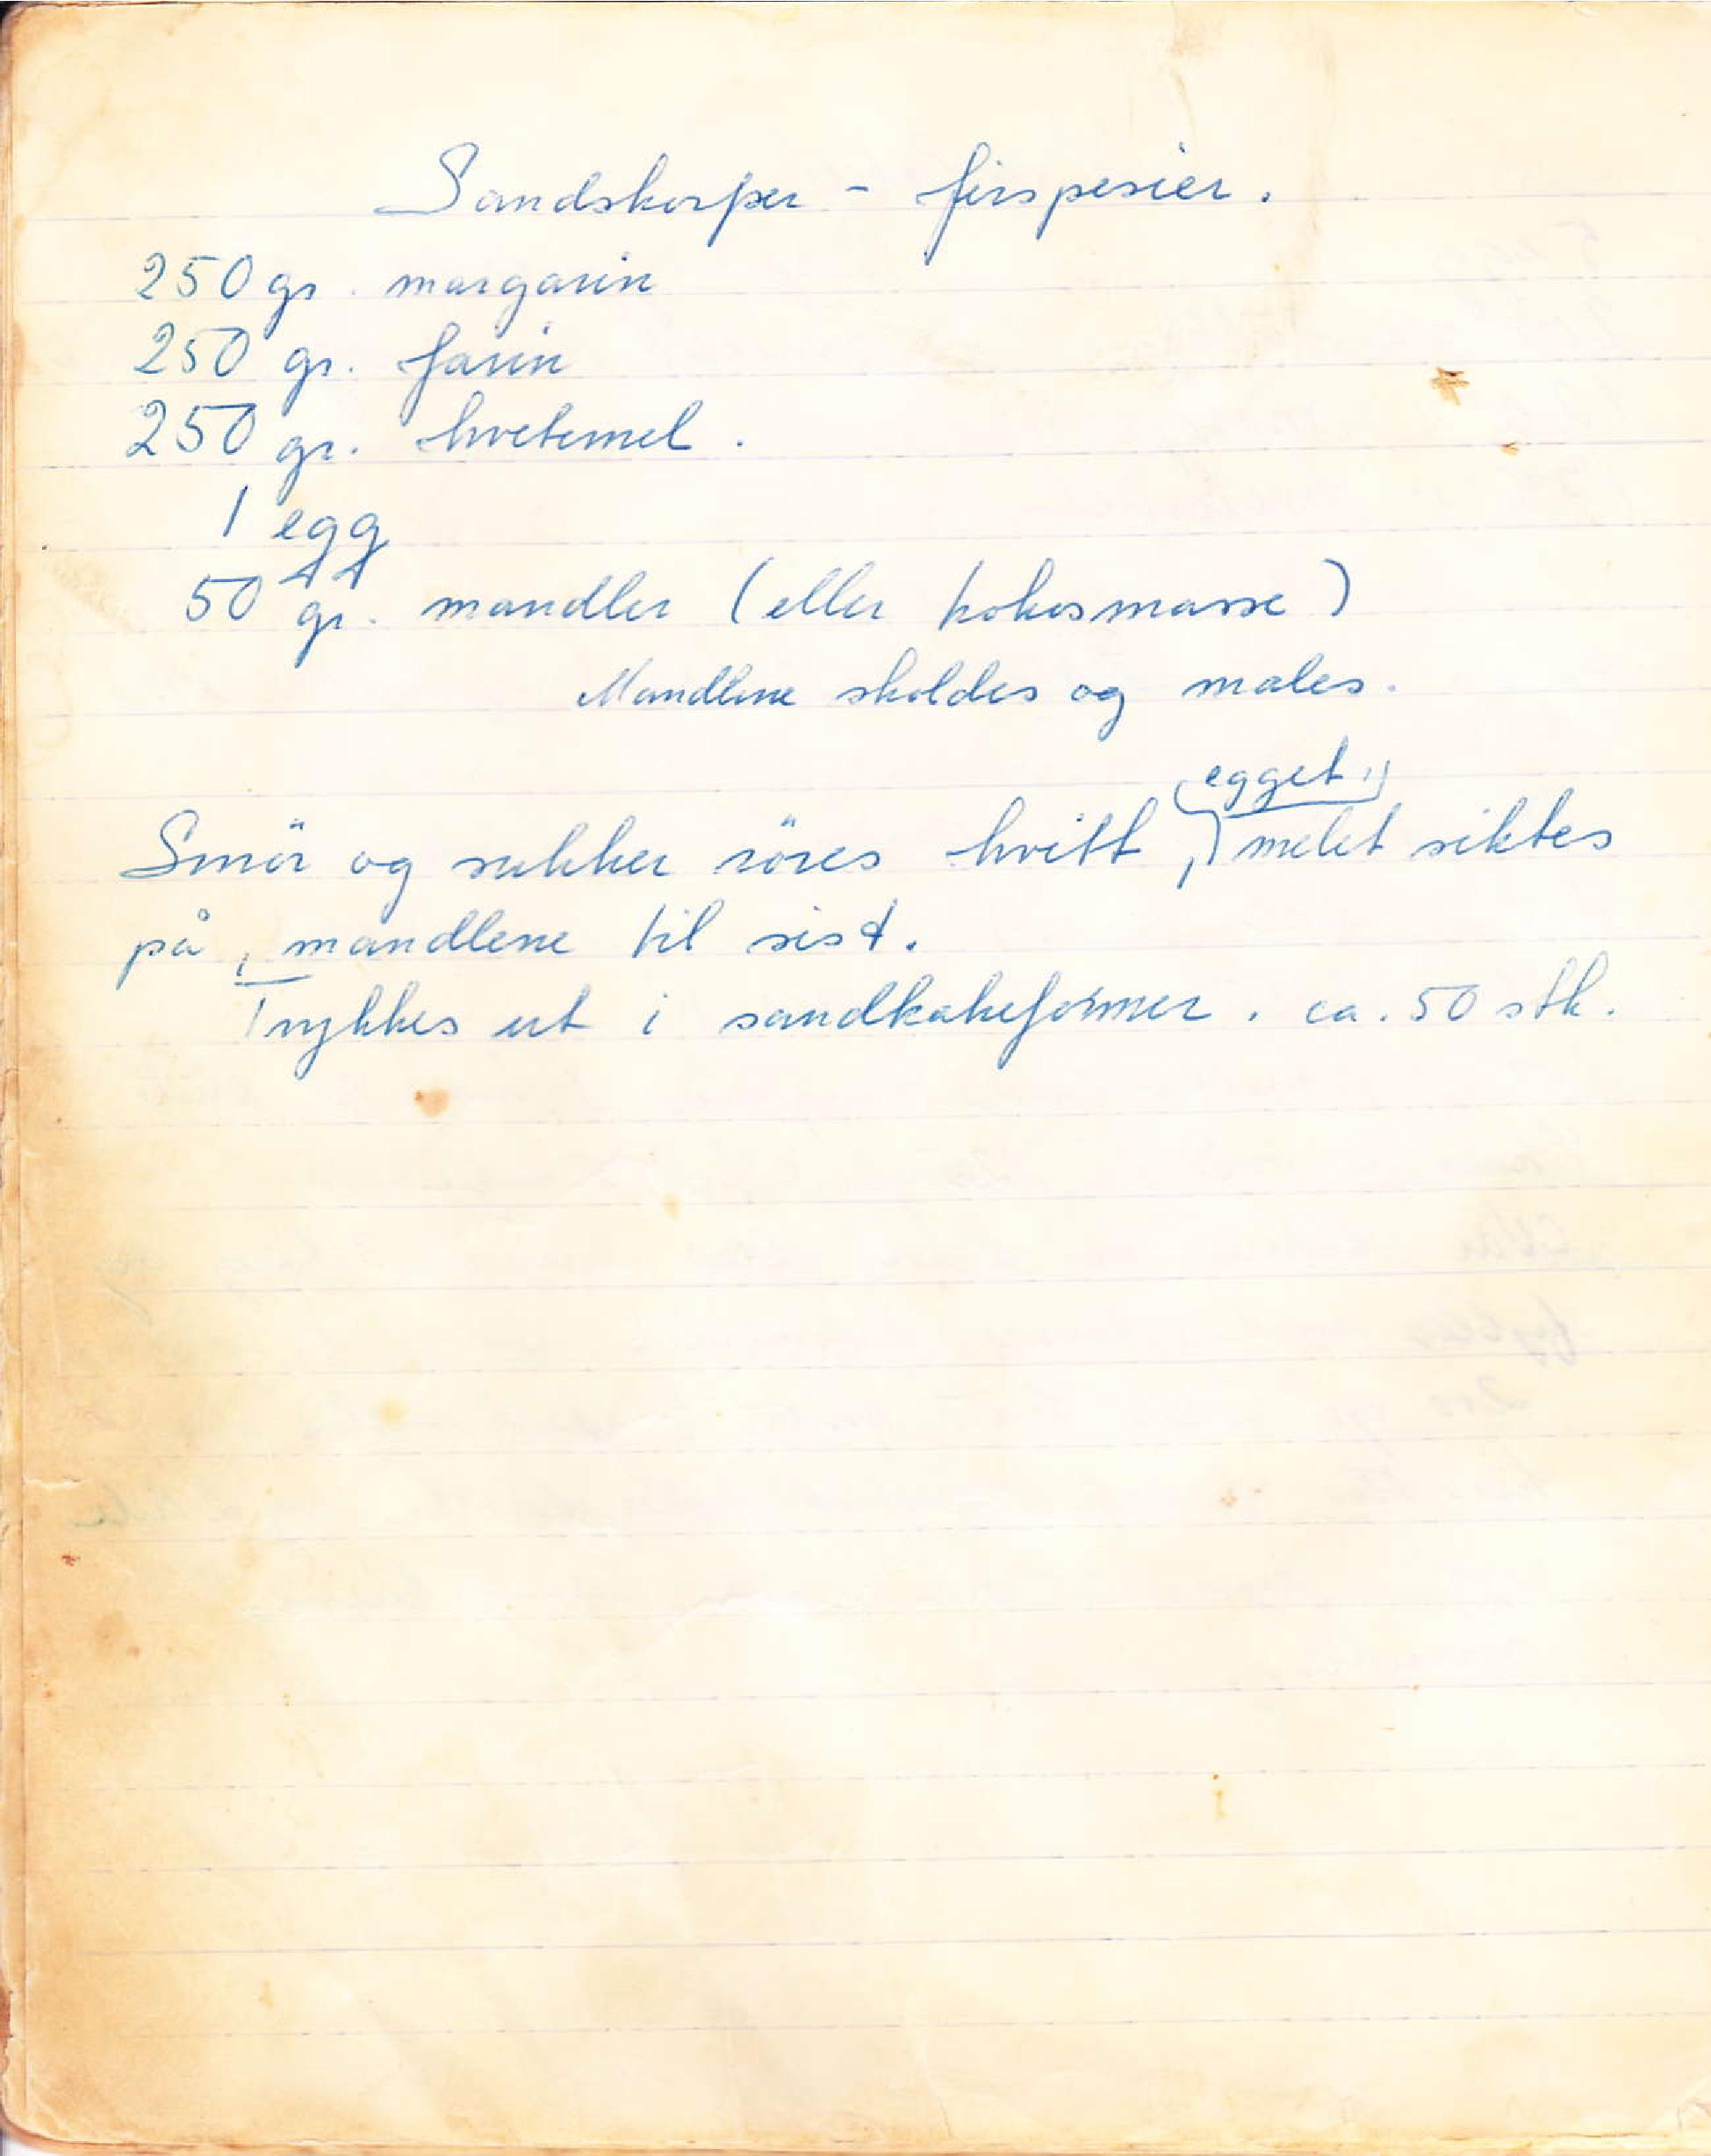 Sandskorper - firspesier.
250 gr. margarin
250 gr. farin
250 gr. hvetemel.
1 egg
50 gr. mandler (eller kokosmasse)
Mandlene skoldes og males.
egget,
Smör og sukker röres hvitt, melet siktes
på, mandlene til sist.
Trykkes ut i sandkakeformer. ca. 50 stk.